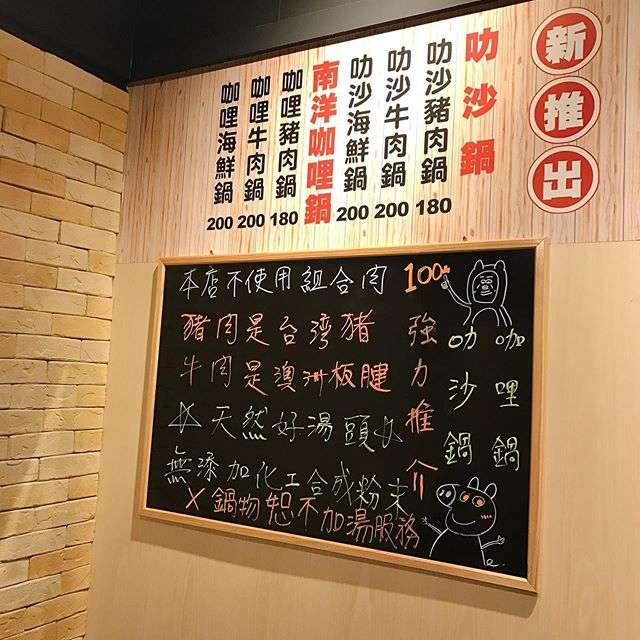 新推出
叻沙鍋
叻沙豬肉鍋 180
叻沙牛肉鍋 200
叻沙海鮮鍋 200
南洋咖哩鍋
咖哩豬肉鍋 180
咖哩牛肉鍋 200
咖哩海鮮鍋 200
本店不使用組合肉
豬肉是台灣豬
牛肉是澳洲板腱
天然好湯頭
無添加化工合成粉末
X 鍋物恕不加湯服務
100%
強力推介
叻沙鍋
咖哩鍋